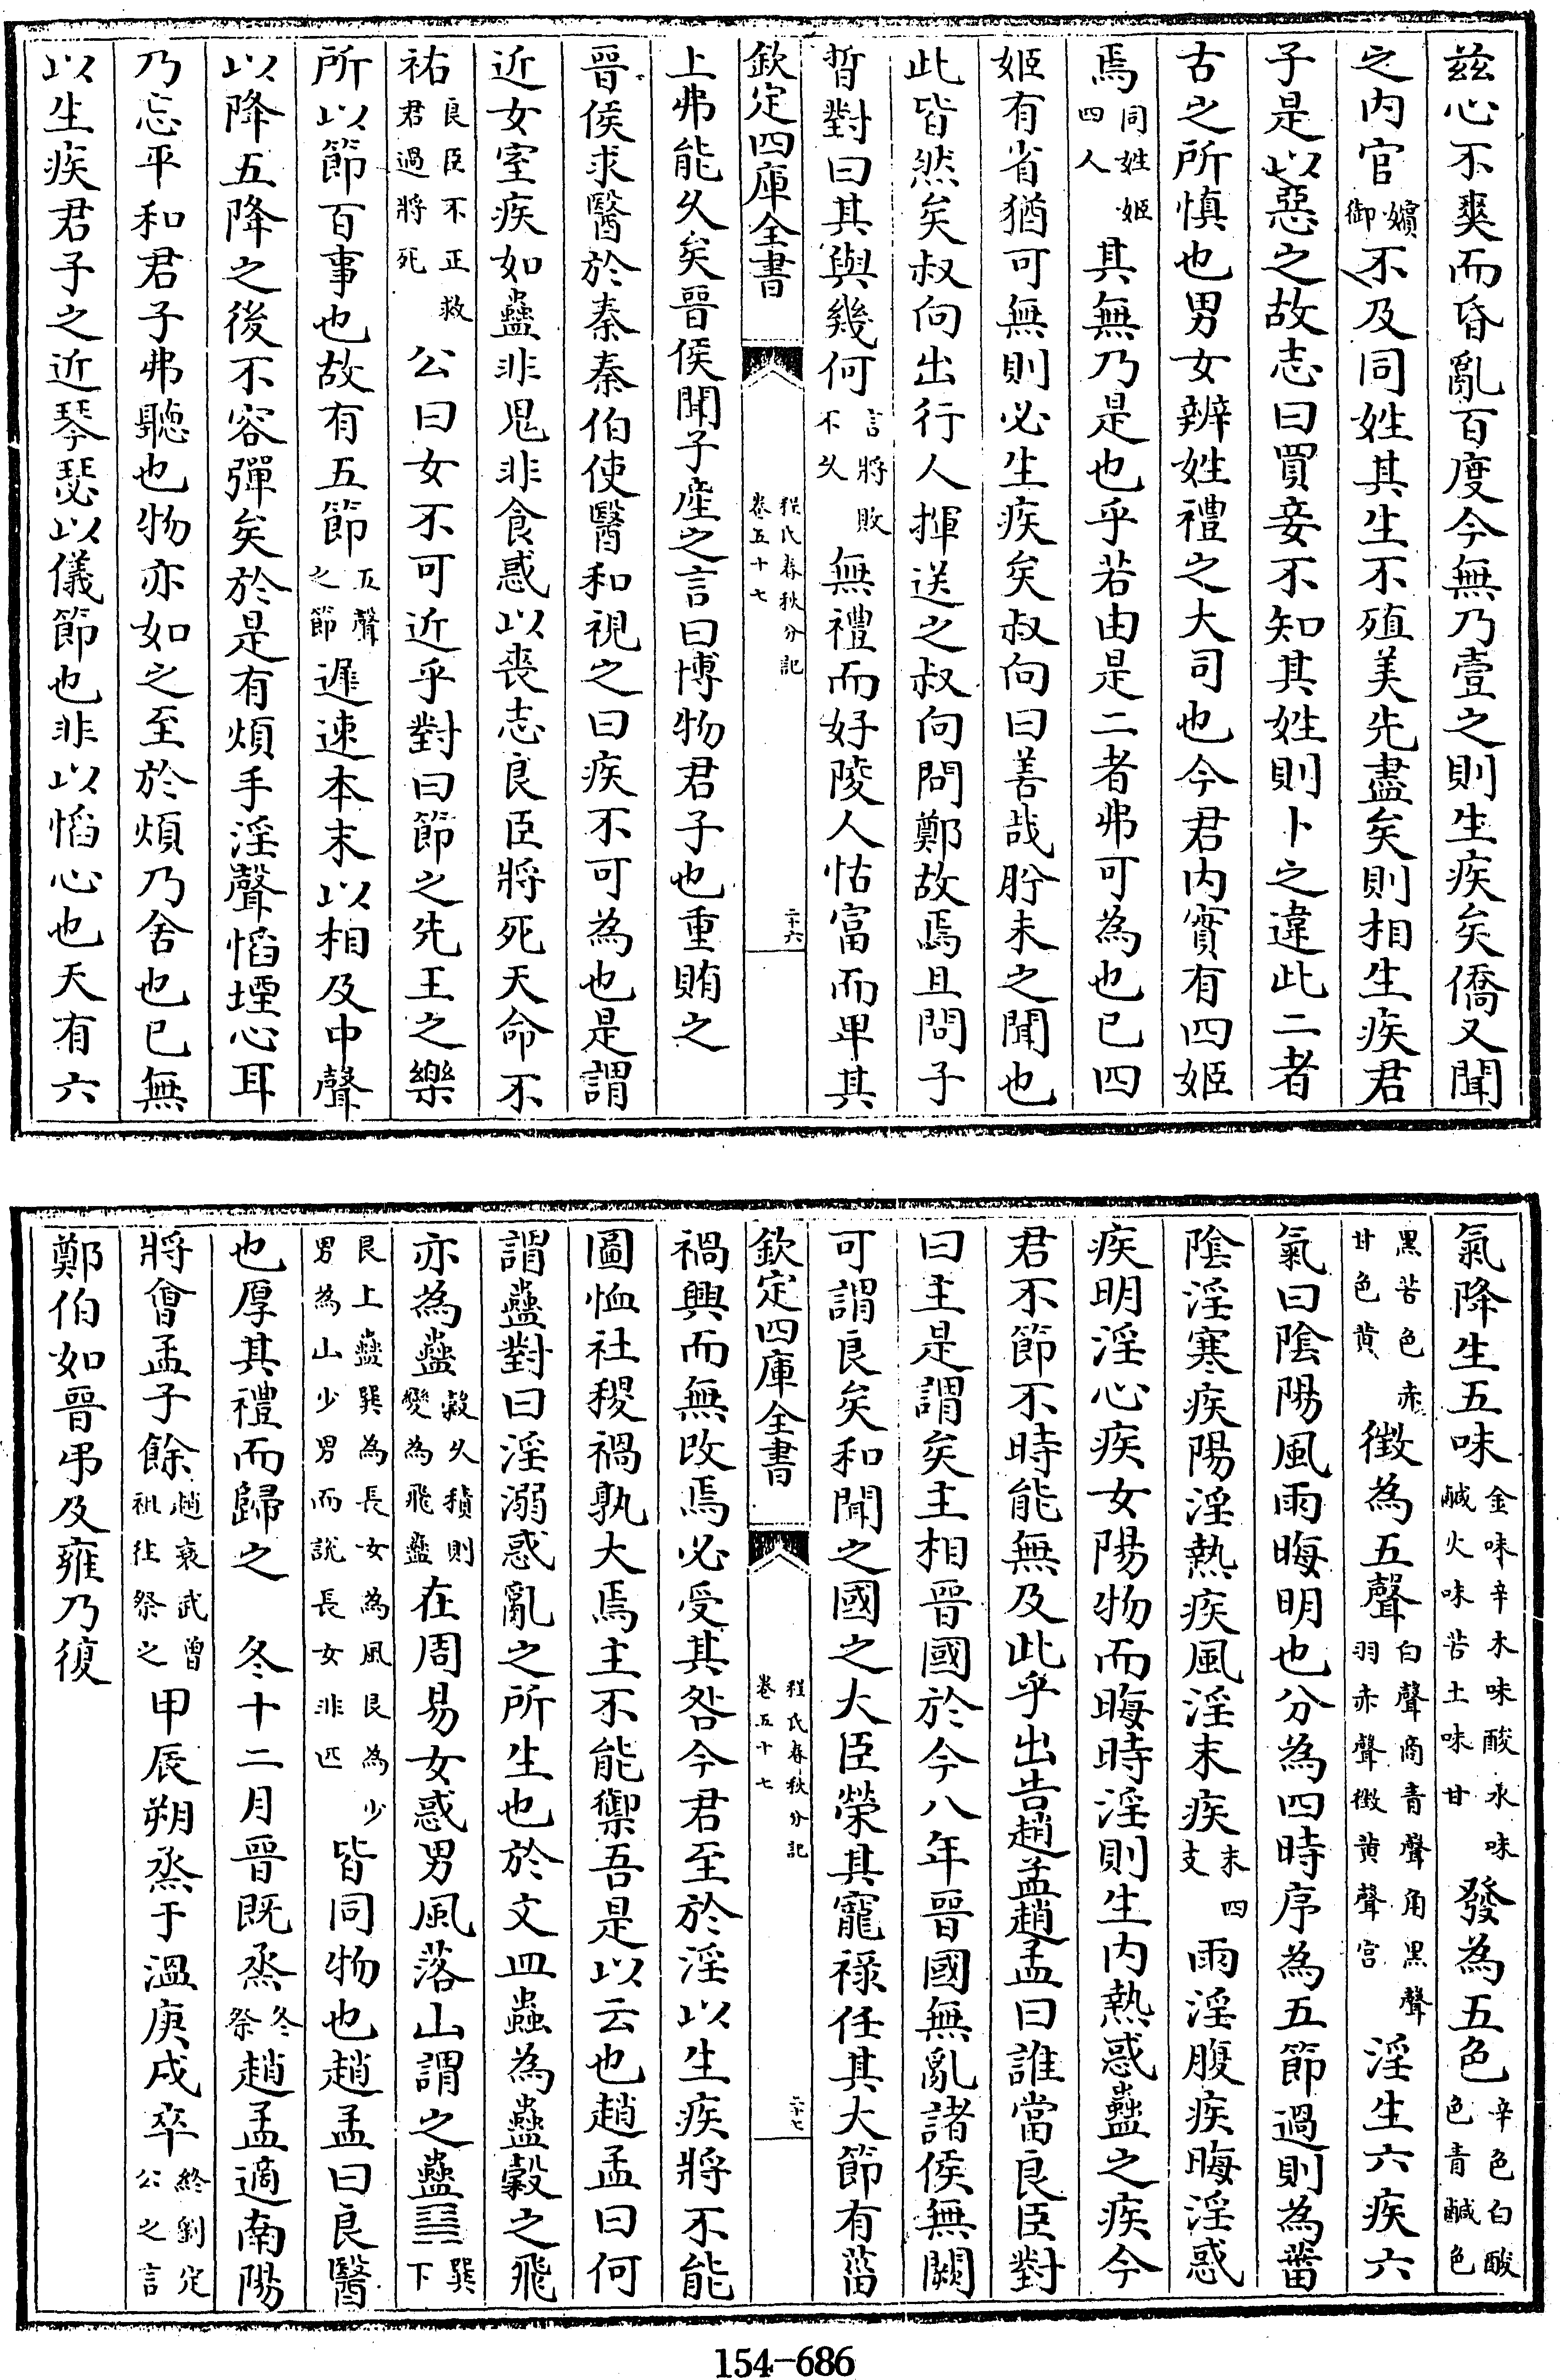 兹心不爽而昏亂百度今無乃壹之則生疾矣僑又聞
之内官嬪御不及同姓其生不殖美先盡矣則相生疾君
子是以惡之故志曰買妾不知其姓則卜之違此二者
古之所慎也男女辨姓禮之大司也今君内實有四姬
焉同姓姬四人其無乃是也乎若由是二者弗可為也已四
姬有省猶可無則必生疾矣叔向曰善哉肸未之聞也
此皆然矣叔向出行人揮送之叔向問鄭故焉且問子
晳對曰其與幾何言將敗不久無禮而好陵人怙富而卑其
欽定四庫全書
程氏春秋分記
卷五十七
二十六
上弗能久矣晉侯聞子產之言曰博物君子也重賄之
晉侯求醫於秦秦伯使醫和視之曰疾不可為也是謂
近女室疾如蠱非鬼非食惑以喪志良臣將死天命不
祐良臣不正救君過將死公曰女不可近乎對曰節之先王之樂
所以節百事也故有五節五聲之節遲速本末以相及中聲
以降五降之後不容彈矣於是有煩手淫聲慆堙心耳
乃忘平和君子弗聽也物亦如之至於煩乃舍也已無
以生疾君子之近琴瑟以儀節也非以慆心也天有六
氣降生五味金味辛木味酸水味鹹火味苦土味甘發為五色辛色白酸色青鹹色
黑苦色赤甘色黄徵為五聲白聲商青聲角黑聲羽赤聲徵黄聲宫淫生六疾六
氣曰陰陽風雨晦明也分為四時序為五節過則為菑
陰淫寒疾陽淫熱疾風淫末疾末四支雨淫腹疾晦淫惑
疾明淫心疾女陽物而晦時淫則生内熱惑蠱之疾今
君不節不時能無及此乎出告趙孟趙孟曰誰當良臣對
曰主是謂矣主相晉國於今八年晉國無亂諸侯無闕
可謂良矣和聞之國之大臣榮其寵祿任其大節有菑
欽定四庫全書
程氏春秋分記
卷五十七
二十七
禍興而無改焉必受其咎今君至於淫以生疾將不能
圖恤社稷禍孰大焉主不能禦吾是以云也趙孟曰何
謂蠱對曰淫溺惑亂之所生也於文皿蟲為蠱穀之飛
亦為蠱穀久積則變為飛蠱在周易女惑男風落山謂之蠱䷑巽下
艮上蠱巽為長女為風艮為少男為山少男而說長女非匹皆同物也趙孟曰良醫
也厚其禮而歸之　冬十二月晉既烝冬祭趙孟適南陽
將會孟子餘趙衰武曾祖往祭之甲辰朔烝于溫庚戌卒終劉定公之言
鄭伯如晉弔及雍乃復
154-686